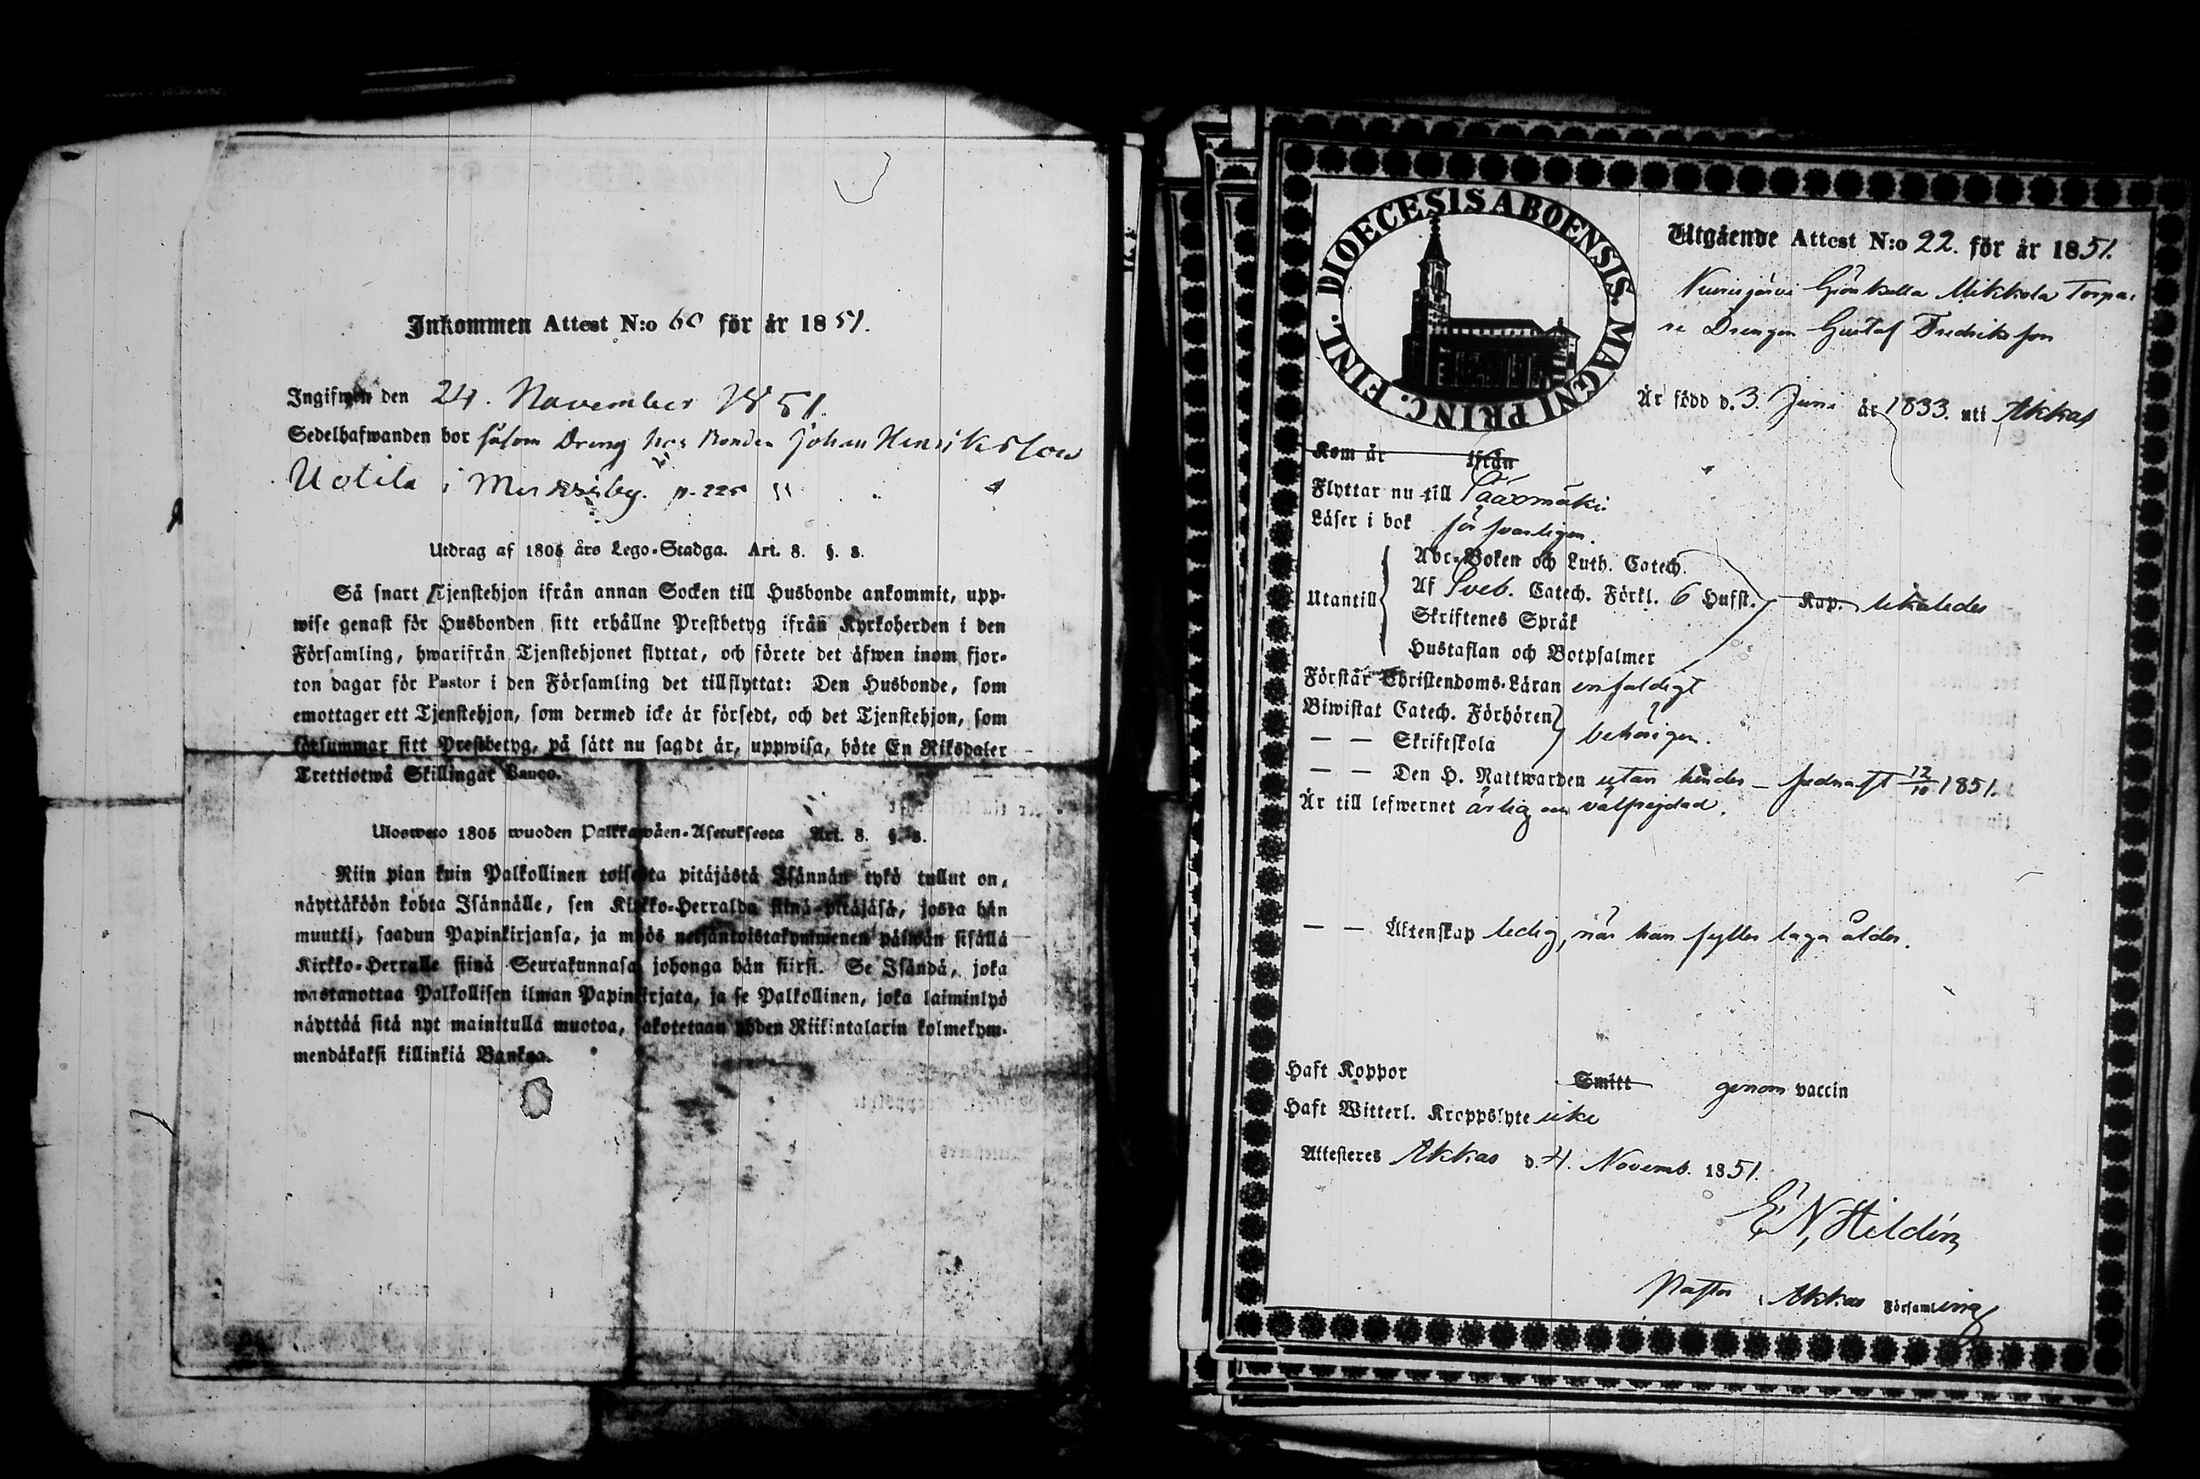 Inkommen Attest N:o 60 för år 1851.
Ingifwen den 24. November 1851.
Sedelhafwanden bor såsom Dreng hos Bonden Johan Henriksson
Uotila i
Utdrag af 1805 års Lego-Stadga. Art. 8. §. 8.
Så snart Tjenstehjon ifrån annan Socken till Husbonde ankommit, upp-
wise genast för Husbonden sitt erhållne Prestbetyg ifrån Kyrkoherden i den
Församling, hwarifrån Tjenstehjonet flyttat, och förete det äfwen inom fjor-
ton dagar för Pastor i den Församling det tillflyttat: Den Husbonde, som
emottager ett Tjenstehjon, som dermed icke är försedt, och det Tjenstehjon, som
försummar sitt Prestbetyg, på sätt nu sagdt är, uppwisa, böte En Riksdaler
Trettiotwå Skillingar Banco.
Uloswето 1805 wuoden Palkkawäen-Asetuksesta Art. 8. §. 8.
Niin pian kuin Palkollinen toisesta pitäjästä Isännän tykö tullut on,
näyttäköön kohta Isännälle, sen Kirkko-Herralda siinä pitäjäsä, josta hän
muutti, saadun Papinkirjansa, ja myös neljäntoistakymmenen päiwän sisällä
Kirkko-Herralle siinä Seurakunnasa johonga hän siirsi. Se Isändä, joka
wastanottaa Palkollisen ilman Papinkirjata, ja se Palkollinen, joka laiminlyö
näyttää sitä nyt mainitulla muotoa, sakotetaan yhden Riikintalarin kolmekym-
mendäkaksi killinkiä Bankoa.
DIOECESIS ABOENSIS. MAGNI PRINC. FINL.
Utgående Attest N:o 22. för år 1851.
Mikkola Torpa-
re Drengen Gustaf Fredriksson
Är född d. 3. Juni år 1833. uti Akkas
Kom år ifrån
Flyttar nu till Sääxmäki.
Läser i bok försvarligen.
Abc-Boken och Luth. Catech.
Utantill Af Sveb. Catech. Förkl. 6 Hufst. Kap. likaledes
Skriftenes Språk
Hustaflan och Botpsalmer
Förstår Christendoms-Läran enfaldigt
Biwistat Catech. Förhören
— — Skriftskola behörigen.
— — Den H. Nattwarden utan hinder — sednast 12/10 1851.
Är till lefwernet ärlig och välfrejdad.
— — Äktenskap ledig, när han fyller laga ålder.
Haft Koppor Smitt genom vaccin
Haft Witterl. Kroppslyte icke
Attesteres Akkas d. 4. Novemb. 1851.
E. N. Hildén
Pastor i Akkas Församling